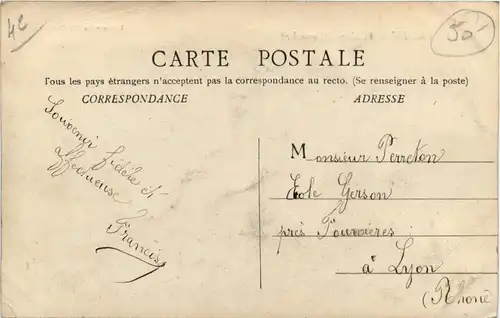 4e
50
CARTE POSTALE
Tous les pays étrangers n'acceptent pas la correspondance au recto. (Se renseigner à la poste)
CORRESPONDANCE
ADRESSE
Souvenir fidèle et
affectueuse
Francis
Monsieur Perreton
Ecole Gerson
près Fourvières
à Lyon
(Rhône